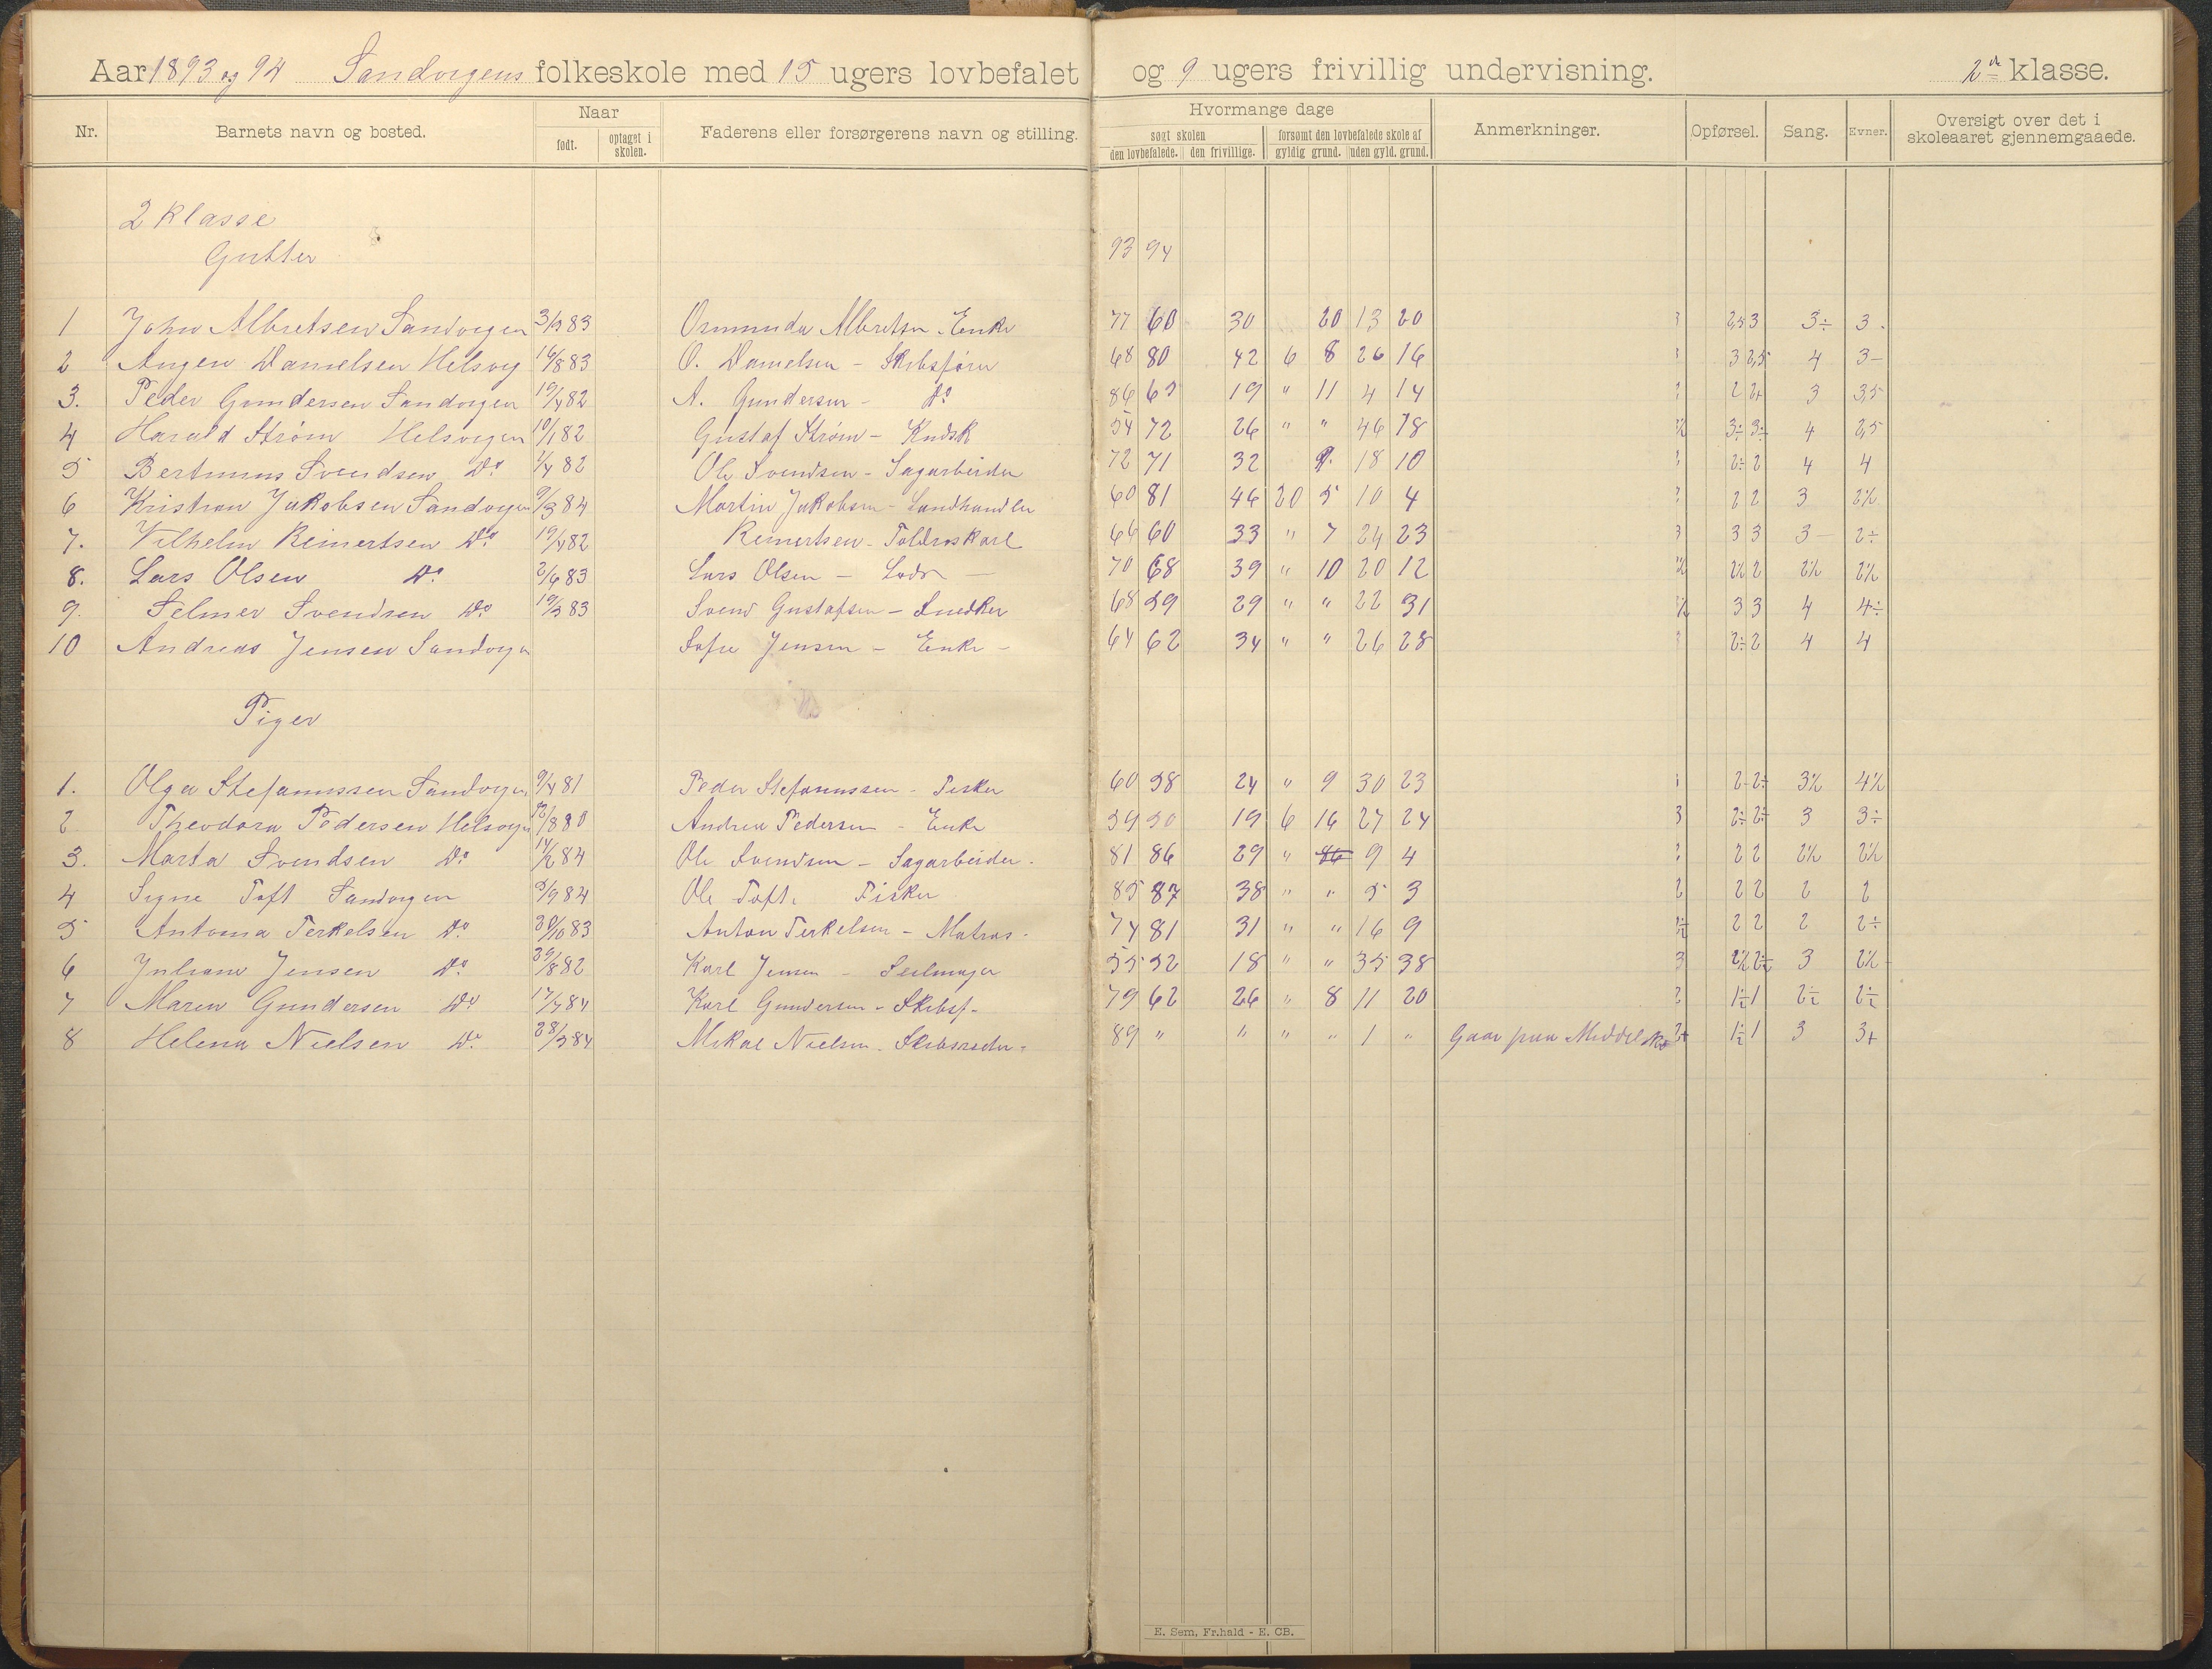 Aar 1893 og 94 Sandvigens folkeskole med 15 ugers lovbefalet og 9 ugers frivillig undervisning. 2de klasse.
Nr. Barnets navn og bosted. Naar født. optaget i skolen. Faderens eller forsørgerens navn og stilling. Hvormange dage søgt skolen den lovbefalede. den frivillige. forsømt den lovbefalede skole af gyldig grund. uden gyld. grund. Anmerkninger. Opførsel. Sang. Evner. Oversigt over det i skoleaaret gjennemgaaede.
2 Klasse
Gutter 93 94
1 John Albretsen Sandvigen 3/3 83 Osmunda Albretsen - Enke 77 60 30 20 13 20 3 2,5 3 3÷ 3
2 Angen Danielsen Helsvig 14/8 83 O. Danielsen - Skibsfører 68 80 42 6 8 26 16 3 2,5 4 3-
3. Peder Gundersen Sandvigen 19/4 82 A. Gundersen - Do 86 63 19 " 11 4 14 2 2+ 3 3,5
4 Harald Strøm Helsvigen 10/1 82 Gustaf Strøm - Kudsk 54 72 26 " " 46 18 3÷ 3÷ 4 2,5
5 Svendsen Do 1/4 82 Ole Svendsen - Sagarbeider 72 71 32 9. 18 10 2÷ 2 4 4
6 Kristian Jakobsen Sandvigen 9/3 84 Martin Jakobsen - Landhandler 60 81 46 20 5 10 4 2 2 3 2½
7. Vilhelm Reinertsen Do 19/4 82 Reinertsen - Toldroskarl 66 60 33 " 7 24 23 3 3 3 3- 2÷
8. Lars Olsen Do 2/6 83 Lars Olsen - Lods - 70 68 39 " 10 20 12 2½ 2 2½ 2½
9. Selmer Svendsen Do 19/3 83 Svend Gustafsen - Snedker 68 59 29 " " 22 31 3 3 4 4÷
10 Andreas Jensen Sandvigen Sofie Jensen - Enke - 64 62 34 " " 26 28 2÷ 2 4 4
Piger
1. Olga Stefanussen Sandvigen 9/4 81 Peder Stefanussen - Fisker 60 58 24 " 9 30 23 2 2÷ 3½ 4½
2 Theodora Pedersen Helsvigen 12/8 80 Andrea Pedersen - Enke 59 50 19 6 16 27 24 3 2÷ 2÷ 3 3÷
3. Marta Svendsen Do 14/2 84 Ole Svendsen - Sagarbeider - 81 86 29 " 86 9 4 2 2 2½ 2½
4 Signe Toft Sandvigen 5/9 84 Ole Toft. Fisker 85 87 38 " " 5 3 2 2 2 2 2
5 Antonia Terkelsen Do 30/10 83 Anton Terkelsen - Matros - 74 81 31 " " 16 9 2 2 2 2÷
6 Juliane Jensen Do 29/8 82 Karl Jensen - Seilmager 55 52 18 " " 35 38 3 2½ 2½ 3 2½
7 Maren Gundersen Do 17/7 84 Karl Gundersen - Skibsf - 79 62 26 " 8 11 20 2 1½ 1 2÷ 2÷
8 Helena Nielsen Do 28/3 84 Mikal Nielsen - Skibsreder - 89 " " " " 1 " Gaar paa Middelsk 2+ 1½ 1 3 3+
E. Sem, Fr.hald - E. CB.